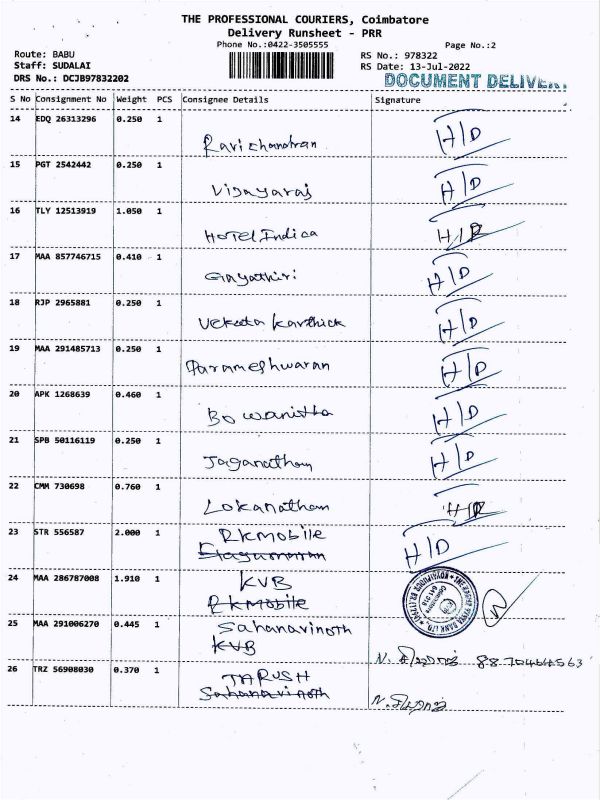 THE PROFESSIONAL COURIERS, Coimbatore
Delivery Runsheet - PRR
Phone No.:0422-3505555
Page No.:2
Route: BABU
RS No.: 978322
Staff: SUDALAI
RS Date: 13-Jul-2022
DRS No.: DCJB97832202
DOCUMENT DELIVERY
S No Consignment No Weight PCS Consignee Details Signature
14 EDQ 26313296 0.250 1 Ravichandran H/D
15 PGT 2542442 0.250 1 Vijayaraj H/D
16 TLY 12513919 1.050 1 Hotel Indica H/R
17 MAA 857746715 0.410 1 Gayathiri H/D
18 RJP 2965881 0.250 1 Vekata Karthick H/D
19 MAA 291485713 0.250 1 Parameshwaran H/D
20 APK 1268639 0.460 1 Bowanitha H/D
21 SPB 50116119 0.250 1 Jaganatham H/D
22 CMM 730698 0.760 1 Lokanatham H/R
23 STR 556587 2.000 1 RK mobile H/D
24 MAA 286787008 1.910 1 KVB
RK Mobile
25 MAA 291006270 0.445 1 Sahanavinoth
KVB
26 TRZ 56908030 0.370 1 TARUSH
Sahanavinoth